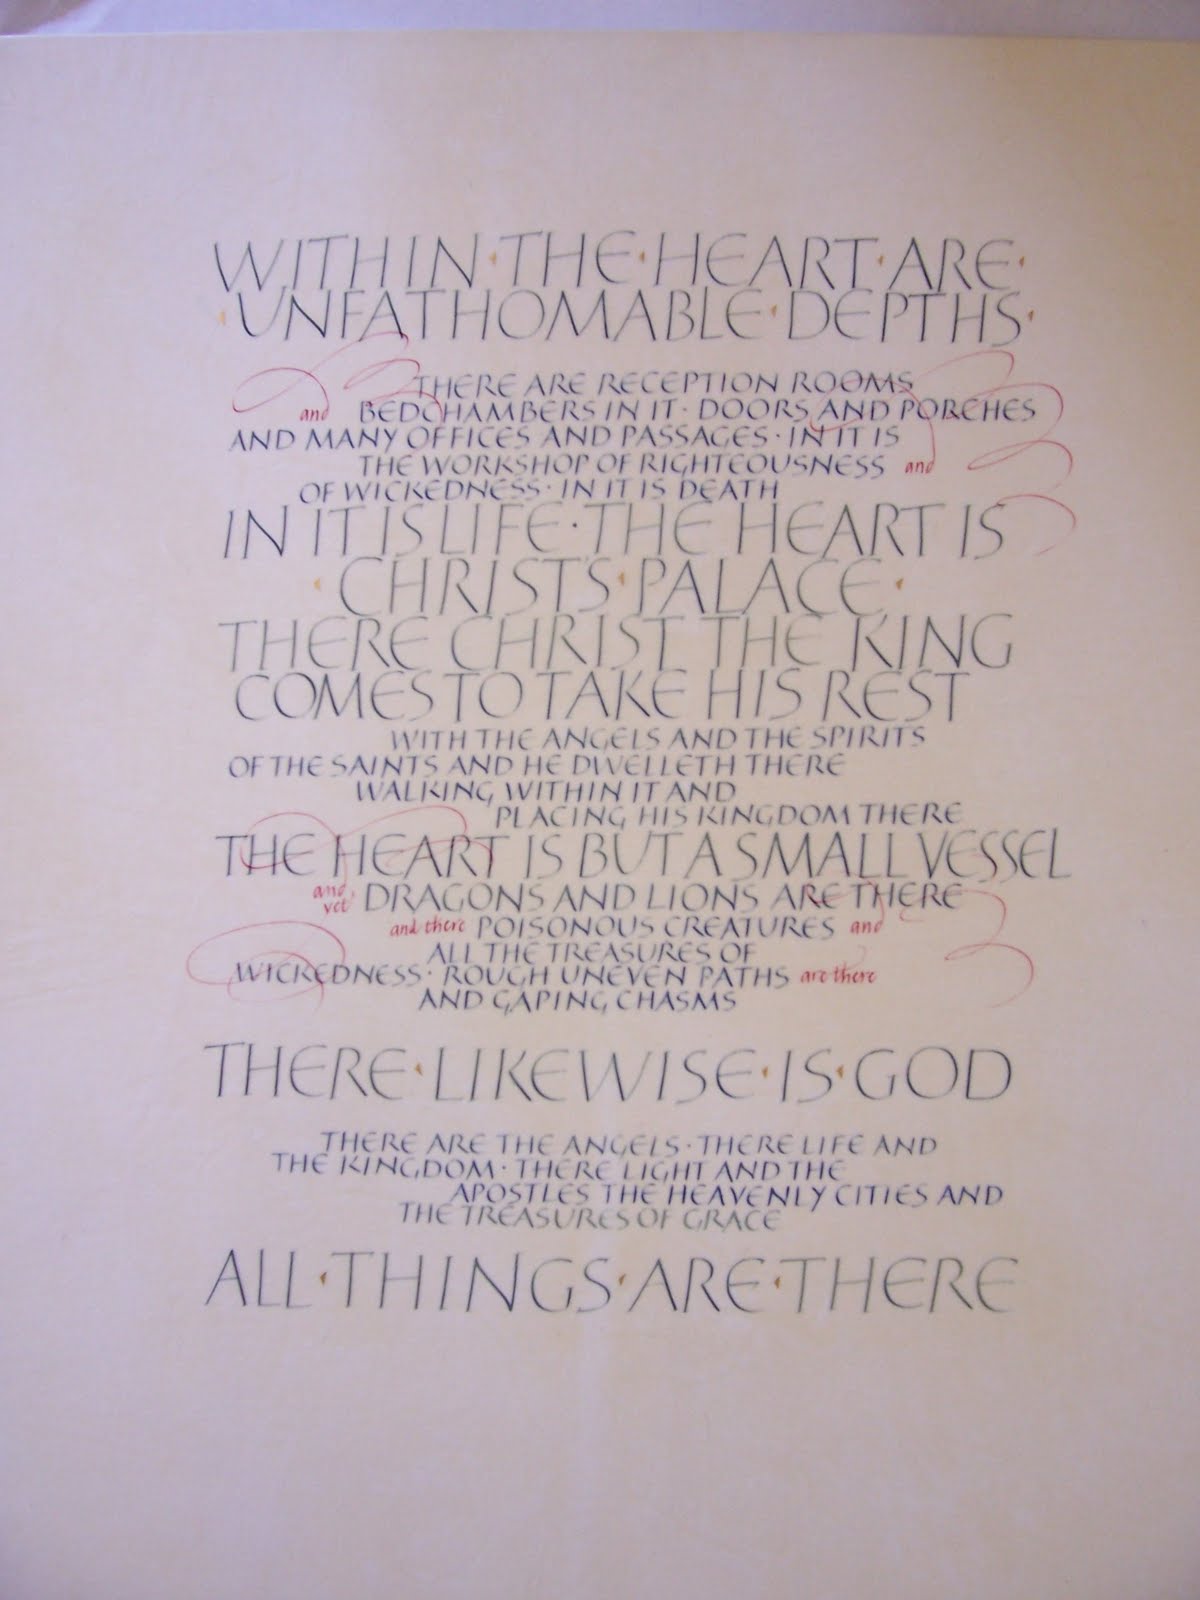 WITHIN · THE · HEART · ARE ·
· UNFATHOMABLE · DEPTHS ·
THERE ARE RECEPTION ROOMS
and BEDCHAMBERS IN IT · DOORS AND PORCHES
AND MANY OFFICES AND PASSAGES · IN IT IS
THE WORKSHOP OF RIGHTEOUSNESS and
OF WICKEDNESS · IN IT IS DEATH
IN IT IS LIFE · THE HEART IS
· CHRIST'S · PALACE ·
THERE CHRIST THE KING
COMES TO TAKE HIS REST
WITH THE ANGELS AND THE SPIRITS
OF THE SAINTS AND HE DWELLETH THERE
WALKING WITHIN IT AND
PLACING HIS KINGDOM THERE
THE HEART IS BUT A SMALL VESSEL
and yet DRAGONS AND LIONS ARE THERE
and there POISONOUS CREATURES and
ALL THE TREASURES OF
WICKEDNESS · ROUGH UNEVEN PATHS are there
AND GAPING CHASMS
THERE · LIKEWISE · IS · GOD
THERE ARE THE ANGELS · THERE LIFE AND
THE KINGDOM · THERE LIGHT AND THE
APOSTLES THE HEAVENLY CITIES AND
THE TREASURES OF GRACE
ALL · THINGS · ARE · THERE